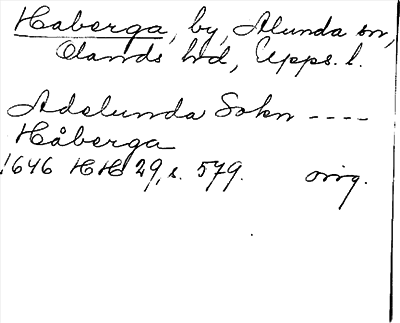 Haberga, by, Alunda sn,
Olands hd, Upps. l.
Adelunda Sokn ----
Håberga
1646 HH 29, s. 579. orig.